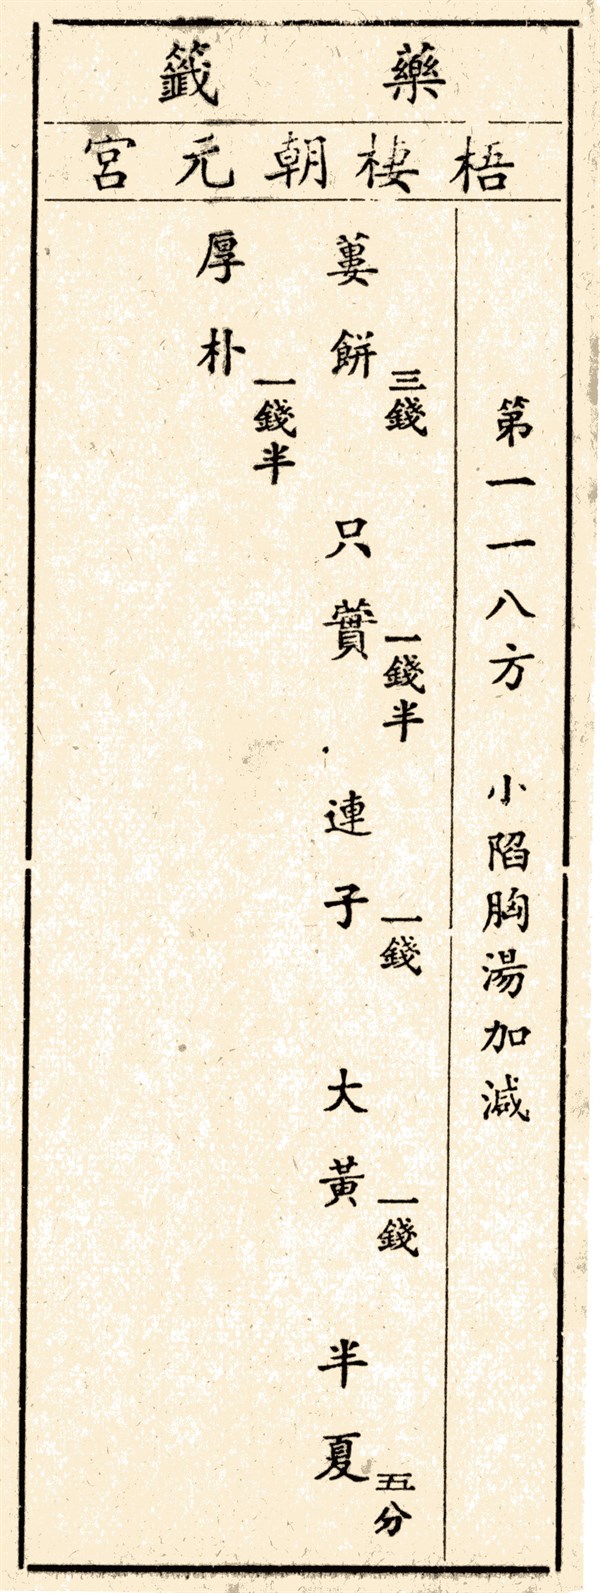 藥籤
梧棲朝元宮
第一一八方 小陷胸湯加減
蔞餅三錢 只蕒一錢半 連子一錢 大黃一錢 半夏五分
厚朴一錢半